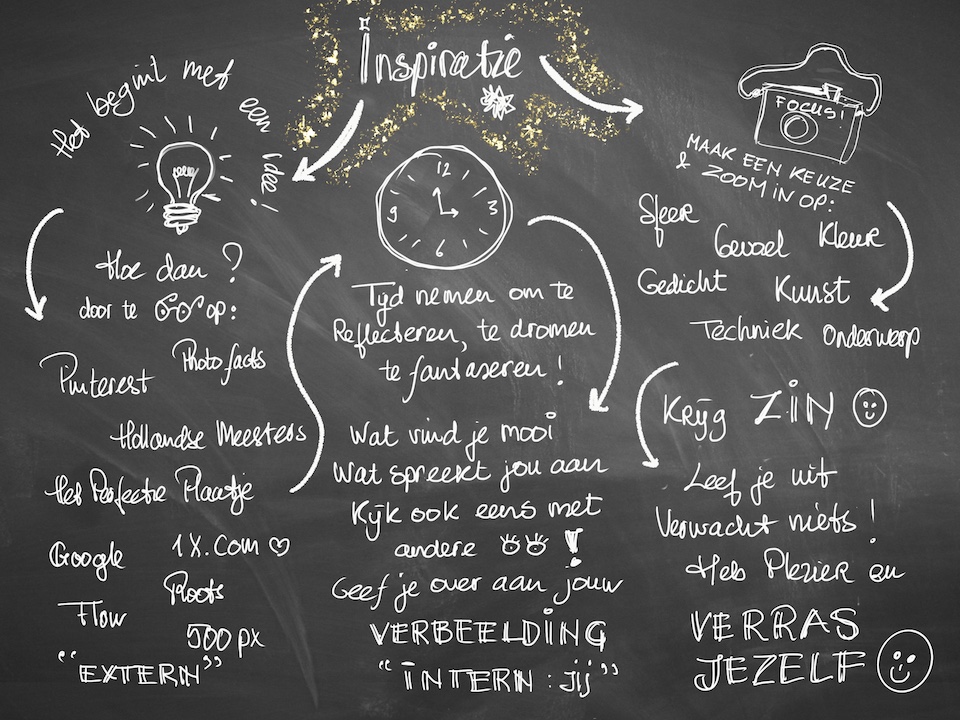 Inspiratie
Het begint met een idee!
Hoe dan?
door te op:
Pinterest
Photofacts
Hollandse Meesters
Het Perfecte Plaatje
Google
1X.com
Roots
Flow
500px
"EXTERN"
12
3
6
9
Tijd nemen om te
Reflecteren, te dromen
te fantaseren!
Wat vind je mooi
Wat spreekt jou aan
Kijk ook eens met
andere !
Geef je over aan jouw
VERBEELDING
"INTERN: jij"
FOCUS!
MAAK EEN KEUZE
& ZOOM IN OP:
Sfeer
Gevoel
Kleur
Gedicht
Kunst
Techniek
Onderwerp
Krijg ZIN
Leef je uit
Verwacht niets!
Heb Plezier en
VERRAS
JEZELF